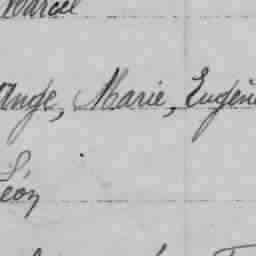 Marcel
Ange, Marie, Eugène
Léon